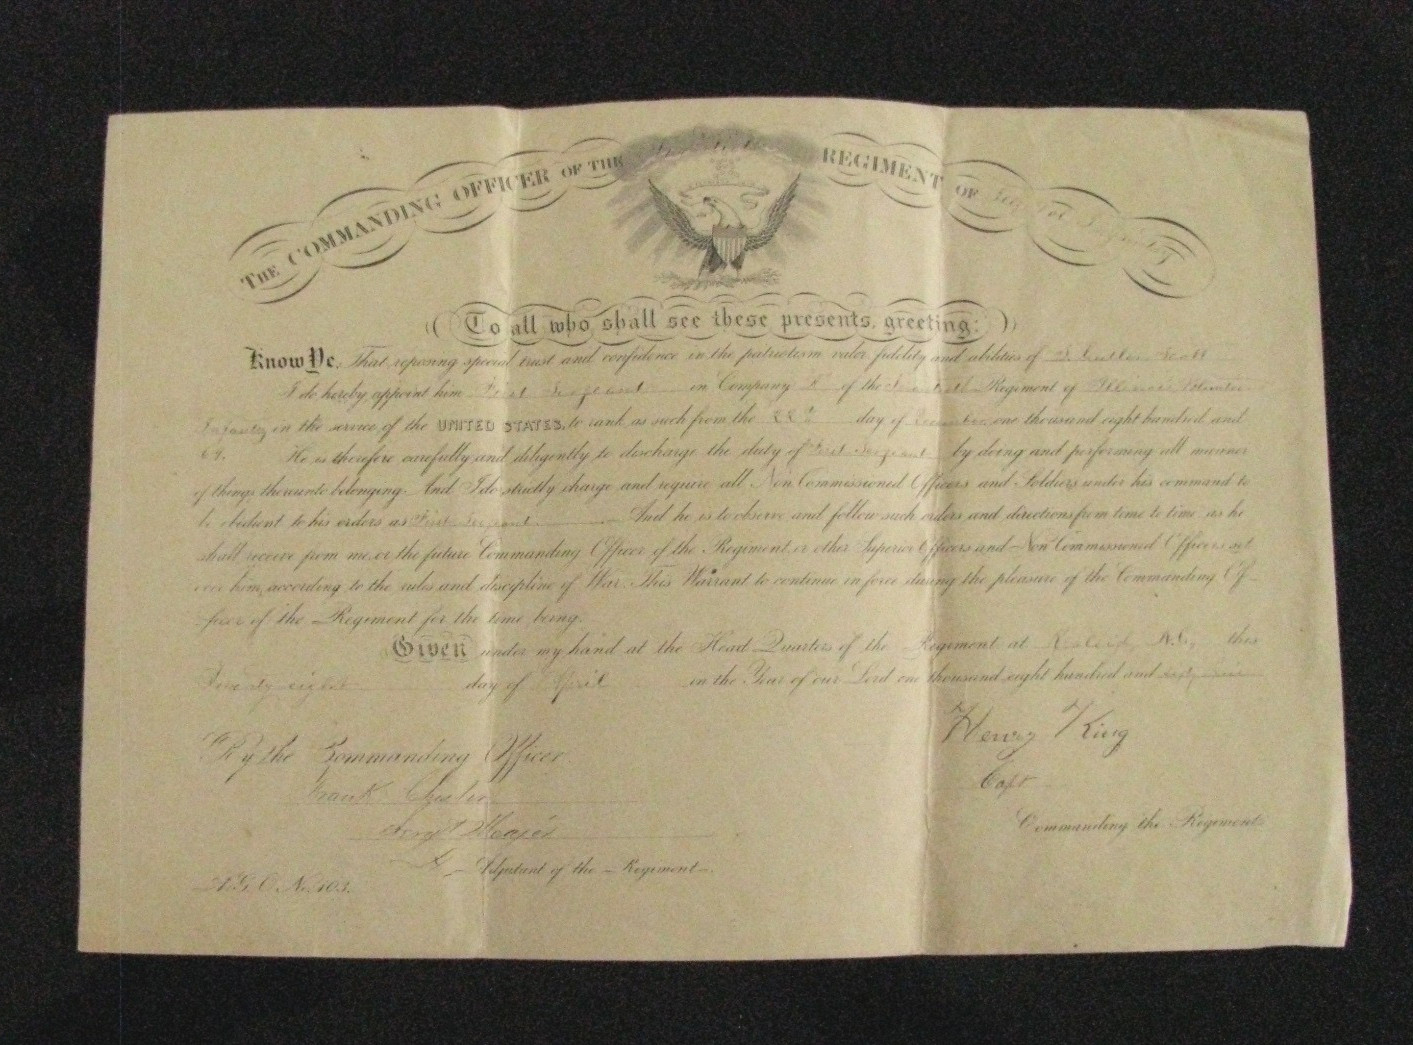 THE COMMANDING OFFICER OF THE REGIMENT OF
To all who shall see these presents, greeting:
Know Ye, That reposing special trust and confidence in the patriotism valor, fidelity and abilities of
I do hereby appoint him First Sergeant in Company K of the Regiment of Illinois
Infantry in the service of the UNITED STATES, to rank as such from the 22d day of one thousand eight hundred and
64. He is therefore carefully and diligently to discharge the duty of First Sergeant by doing and performing all manner
of things thereunto belonging. And I do strictly charge and require all Non Commissioned Officers and Soldiers under his command to
be obedient to his orders as First Sergeant And he is to observe and follow such orders and directions from time to time, as he
shall receive from me, or the future Commanding Officer of the Regiment or other Superior Officers and Non Commissioned Officers set
over him, according to the rules and discipline of War. This Warrant to continue in force during the pleasure of the Commanding Of-
ficer of the Regiment for the time being.
Given under my hand at the Head Quarters of the Regiment at Raleigh N.C, this
Twenty eight day of April in the Year of our Lord one thousand eight hundred and sixty five
By the Commanding Officer.
Henry King
Capt
Commanding the Regiment.
Frank
Sergt Major
Adjutant of the Regiment.
A.G.O. No. 103.